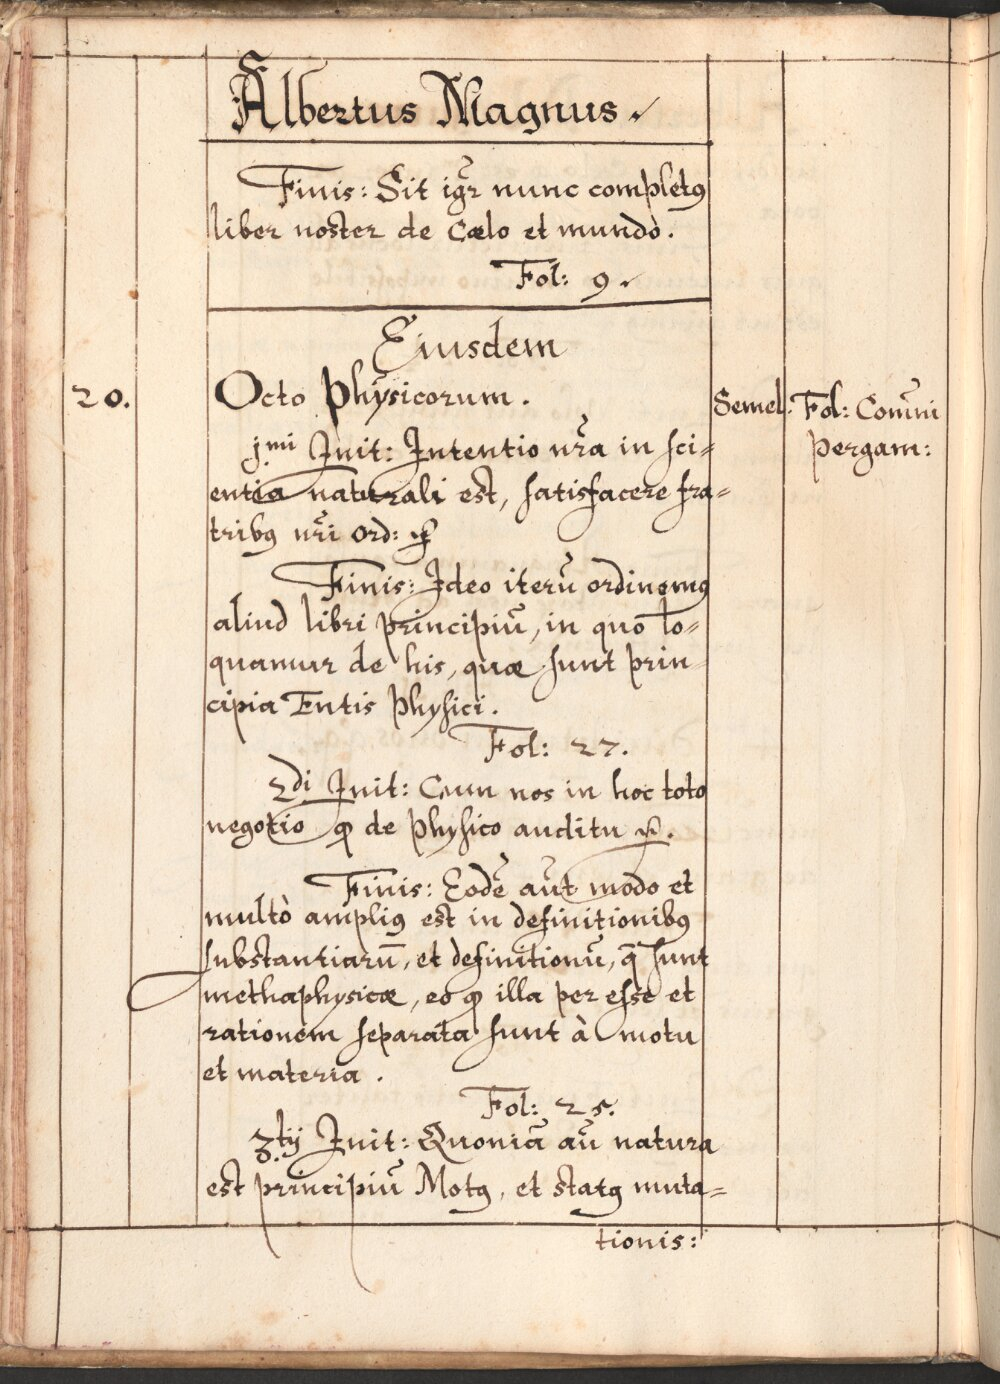 Albertus Magnus.
Finis: Sit igr̃ nunc completꝯ
liber noster de Cælo et mundo.
Fol: 9.
Eiusdem
20. Octo Physicorum. Semel. Fol: Com̃ni
pergam:
j.mi Init: Intentio nr̃a in sci=
entia naturali est, satisfacere fra=
tribꝯ nr̃i ord:
Finis: Ideo iterũ ordinemꝯ
aliud libri principiũ, in quo lo=
quamur de his, quæ sunt prin=
cipia Entis Physici.
Fol: 27.
2di Init: Cum nos in hoc toto
negotio ꝙ de physico auditu
Finis: Eodẽ aũt modo et
multò ampliꝯ est in definitionibꝯ
substantiarũ, et definitionũ, q̃ sunt
methaphysicæ, eo ꝙ illa per esse et
rationem separata sunt à motu
et materia.
Fol: 25.
3.tij Init: Quoniã aũ natura
est principiũ Motꝯ, et statꝯ muta=
tionis: